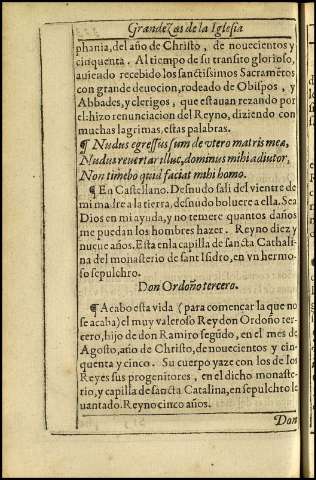 Grandezas de la Iglesia
phania, del año de Christo, de nouecientos y
cinquenta. Al tiempo de su transito glorioso,
auiẽdo recebido los sanctissimos Sacramẽtos
con grande deuocion, rodeado de Obispos, y
Abbades, y clerigos, que estauan rezando por
el: hizo renunciacion del Reyno, diziendo con
muchas lagrimas, estas palabras.
¶ Nudus egressus sum de vtero matris mea,
Nudus reuertar illuc, dominus mihi adiutor,
Non timebo quid faciat mihi homo.
¶ En Castellano. Desnudo sali del vientre de
mi madre a la tierra, desnudo boluere a ella. Sea
Dios en mi ayuda, y no temere quantos daños
me puedan los hombres hazer. Reyno diez y
nueue años. Esta en la capilla de sancta Cathali-
na del monasterio de sant Isidro, en vn hermo-
so sepulchro.
Don Ordoño tercero.
¶ Acabo esta vida (para començar la que no
se acaba) el muy valeroso Rey don Ordoño ter-
cero, hijo de don Ramiro segũdo, en el mes de
Agosto, año de Christo, de nouecientos y cin-
quenta y cinco. Su cuerpo yaze con los de los
Reyes sus progenitores, en el dicho monaste-
rio, y capilla de sancta Catalina, en sepulchro le
uantado. Reyno cinco años.
Don